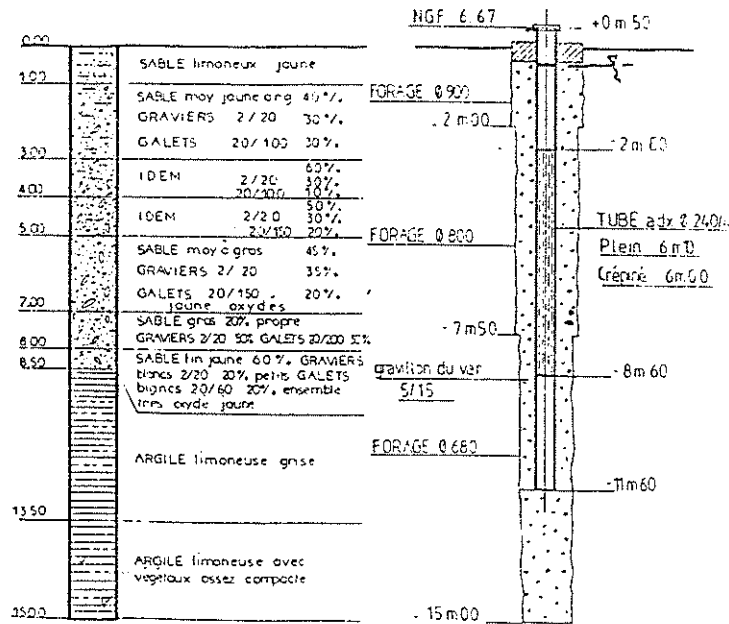 NGF 6.67
+0 m 50
0.00
SABLE limoneux jaune
1.00
SABLE moy jaune org 40%.
GRAVIERS 2/20 30%.
GALETS 20/100 30%.
3.00
60%.
IDEM 2/20 30%.
20/100 10%.
4.00
50%.
IDEM 2/20 30%.
20/150 20%.
5.00
SABLE moy à gros 45%.
GRAVIERS 2/20 35%.
GALETS 20/150 . 20%.
jaune oxydés
7.00
SABLE gros 20%. propre
GRAVIERS 2/20 50% GALETS 20/200
8.00
8.50
SABLE fin jaune 60%. GRAVIERS
blancs 2/20 20%. petits GALETS
blancs 20/60 20%. ensemble
très oxyde jaune
ARGILE limoneuse grise
13.50
ARGILE limoneuse avec
végétaux assez compacte
15.00
FORAGE Ø.900
- 2 m 00
-2 m 60
TUBE adx Ø.240/
Plein 6 m 10
Crépine 6 m.00
FORAGE Ø.800
-7 m 50
gravillon du var
5/15
-8 m 60
FORAGE Ø.680
-11 m 60
- 15 m 00